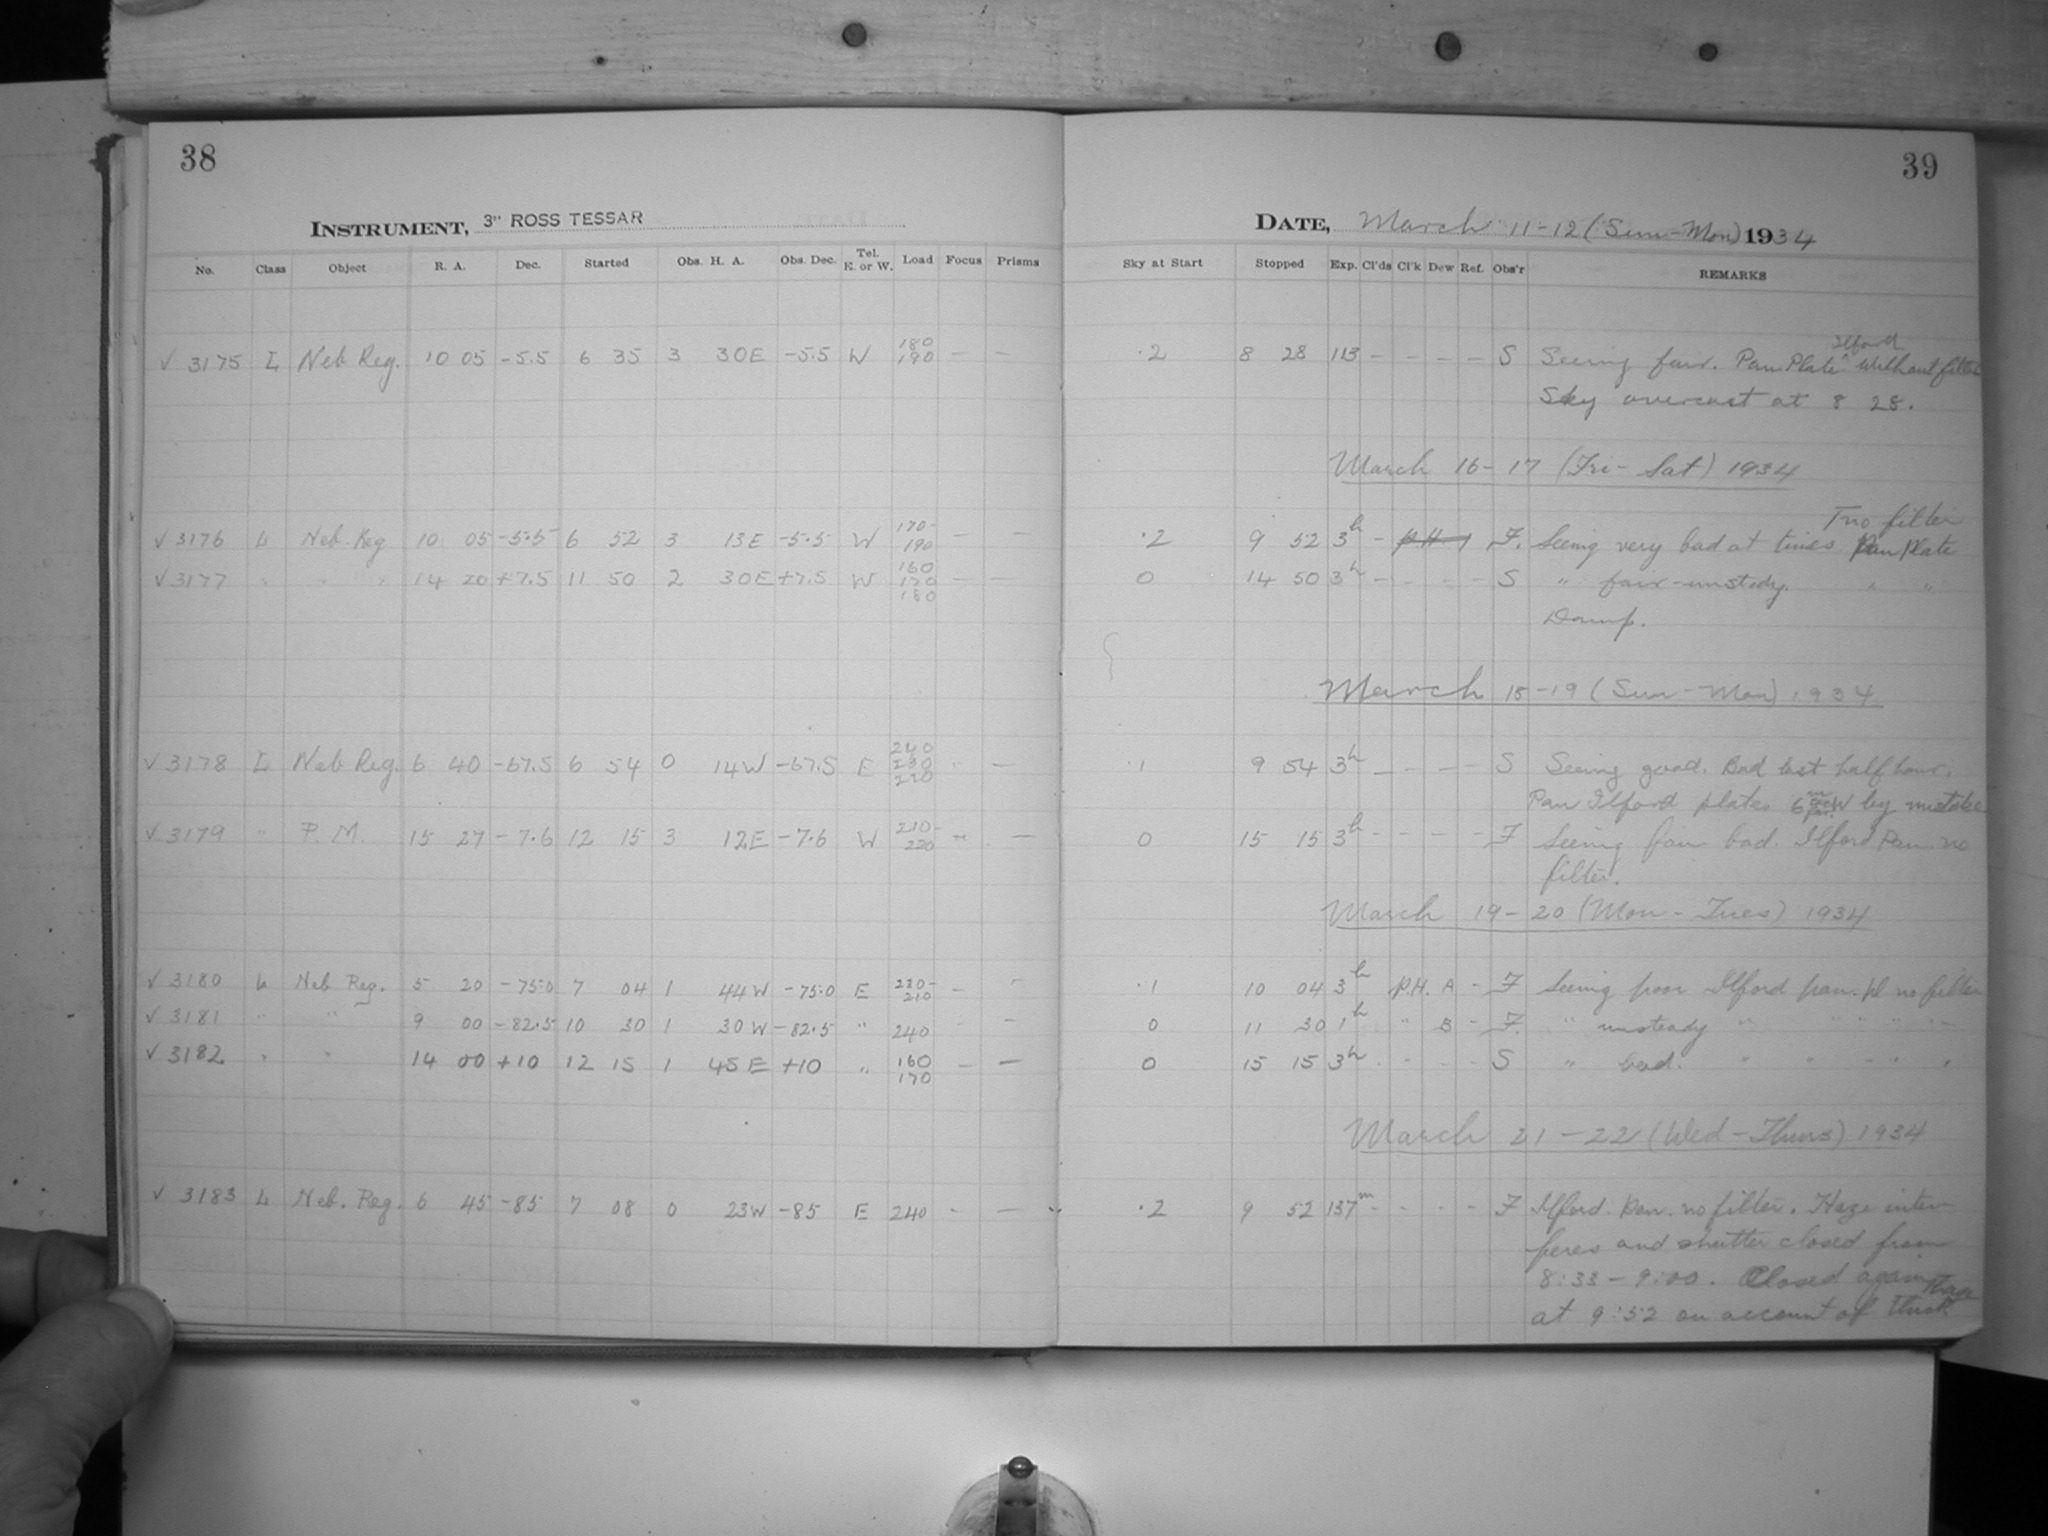 38
INSTRUMENT, 3" ROSS TESSAR
No. Class Object R. A. Dec. Started Obs. H. A. Obs. Dec. Tel. E. or W. Load Focus Prisms
√ 3175 L Neb Reg. 10 05 -5.5 6 35 3 30E -5.5 W 180 190 — —
√ 3176 L Neb. Reg 10 05 -5.5 6 52 3 13E -5.5 W 170- 190 — —
√ 3177 " " " 14 20 +7.5 11 50 2 30E +7.5 W 160 170 180 — —
√ 3178 L Neb Reg. 6 40 -67.5 6 54 0 14W -67.5 E 240 230 220 - —
√ 3179 " P. M. 15 27 -7.6 12 15 3 12E -7.6 W 210- 220 - —
√ 3180 L Neb Reg. 5 20 -75.0 7 04 1 44W -75.0 E 220- 210 — -
√ 3181 " " 9 00 -82.5 10 30 1 30W -82.5 " 240 - -
√ 3182 " " 14 00 +10 12 15 1 45E +10 " 160 170 — —
√ 3183 L Neb. Reg. 6 45 -85 7 08 0 23W -85 E 240 - —
39
DATE, March 11-12 (Sun-Mon) 1934
Sky at Start Stopped Exp. Cl'ds Cl'k Dew Ref. Obs'r REMARKS
.2 8 28 113 - - - - S Seeing fair. Pan Plate ^Ilford Without filter
Sky overcast at 8 28.
March 16-17 (Fri-Sat) 1934
.2 9 52 3h - P.H. F. Seeing very bad at times. Pan Plate no filter
0 14 50 3h - - - - S " fair-unstedy. " "
Damp.
March 18-19 (Sun-Mon) 1934
.1 9 54 3h - - - - S Seeing good. Bad last half hour.
Pan Ilford plates 6m W by mistake
0 15 15 3h - - - - F Seeing bad. Ilford Pan. no
filter.
March 19-20 (Mon-Tues) 1934
.1 10 04 3h P.H. A - F Seeing poor Ilford pan. pl no filter
0 11 30 1h " B - F. " unsteady " " " " "
0 15 15 3h - - - - S " bad. " " " " "
March 21-22 (Wed-Thurs) 1934
.2 9 52 137m - - - - F Ilford. Pan. no filter. Haze inter
feres and shutter closed from
8:33-9:00. Closed again
at 9:52 on account of thick haze